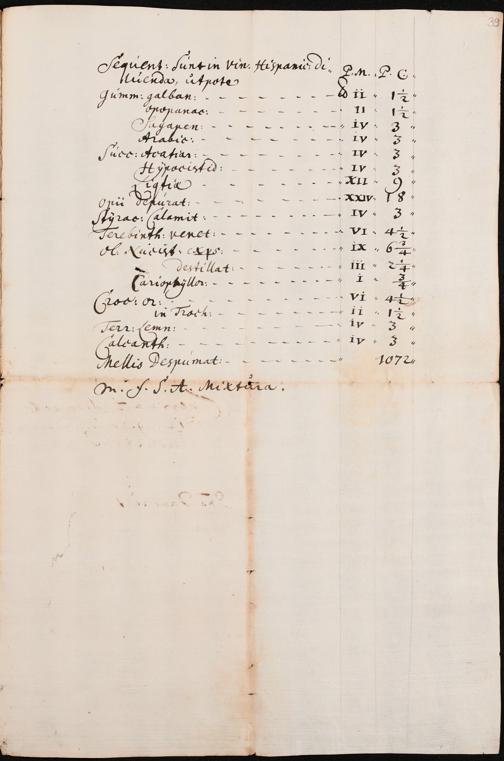 39
Sequent: Sunt in vin: Hispanic: di- P. M. P. C.
luenda, utpote
Gumm: galban: ii 1 1/2
opopanac: II 1 1/2
Sagapen: iv 3
Arabic: iv 3
Succ: Acatiar: iv 3
Hypocistid: iv 3
XII 9
opii depurat: XXIV 18
Styrac: Calamit: iv 3
Terebinth: venet: VI 4 1/2
ol: Nucist: exps: ix 6 3/4
destillat: iii 2 1/4
Cariophyllor: i 3/4
Croc: or: vi 4 1/2
in Troch: ii 1 1/2
Terr: Lemn: iv 3
Calcanth: iv 3
Mellis Despumat: 1072
M. f. S. A. Mixtura.